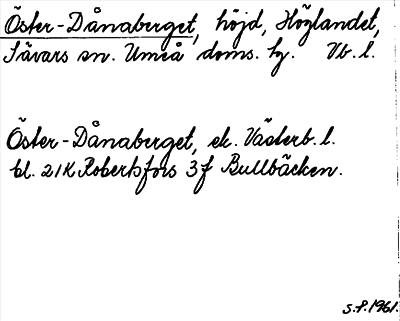 Öster-Dånaberget, höjd, Höglandet,
Sävars sn. Umeå doms. hg. Vb. l.
Öster-Dånaberget, ek. Västerb. l.
bl. 21K Robertsfors 3f Bullbäcken.
S.P. 1961.